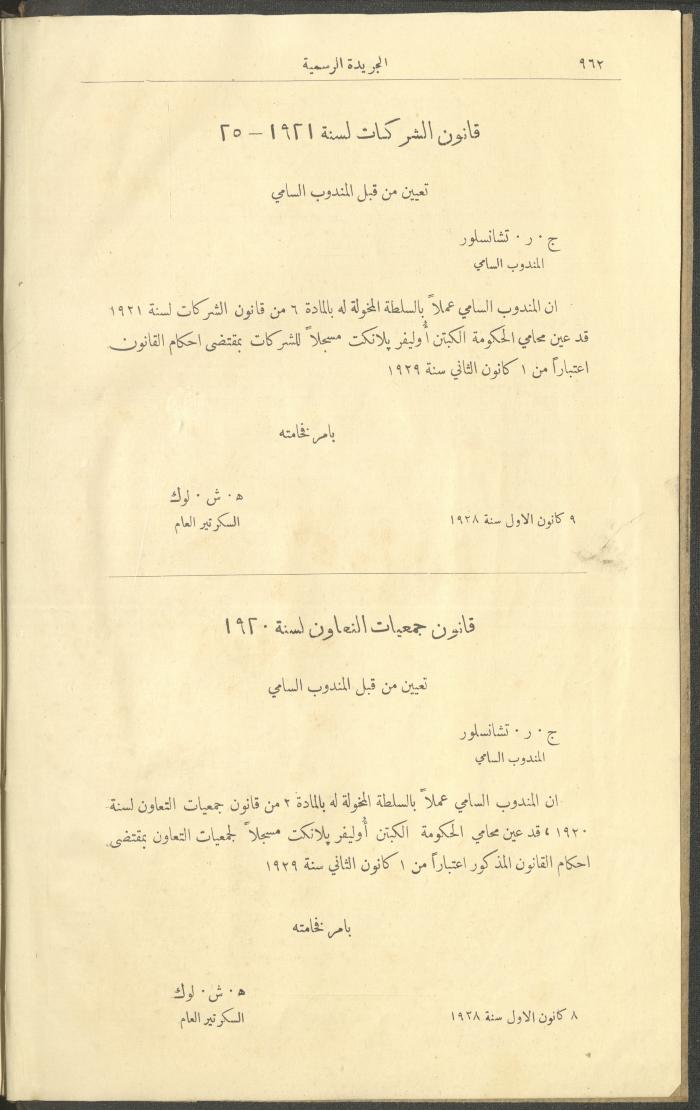 ٩٦٢
الجريدة الرسمية
قانون الشركات لسنة ١٩٢١ – ٢٥
تعيين من قبل المندوب السامي
ج ٠ ر ٠ تشانسلور
المندوب السامي
ان المندوب السامي عملاً بالسلطة المخولة له بالمادة ٦ من قانون الشركات لسنة ١٩٢١
قد عين محامي الحكومة الكبتن أُوليفر پلانكت مسجلاً للشركات بمقتضى احكام القانون
اعتباراً من ١ كانون الثاني سنة ١٩٢٩
بامر فخامته
ه ٠ ش ٠ لوك
السكرتير العام
٩ كانون الاول سنة ١٩٢٨
قانون جمعيات التعاون لسنة ١٩٢٠
تعيين من قبل المندوب السامي
ج ٠ ر ٠ تشانسلور
المندوب السامي
ان المندوب السامي عملاً بالسلطة المخولة له بالمادة ٢ من قانون جمعيات التعاون لسنة
١٩٢٠ ، قد عين محامي الحكومة الكبتن أُوليفر پلانكت مسجلاً لجمعيات التعاون بمقتضى
احكام القانون المذكور اعتباراً من ١ كانون الثاني سنة ١٩٢٩
بامر فخامته
ه ٠ ش ٠ لوك
السكرتير العام
٨ كانون الاول سنة ١٩٢٨